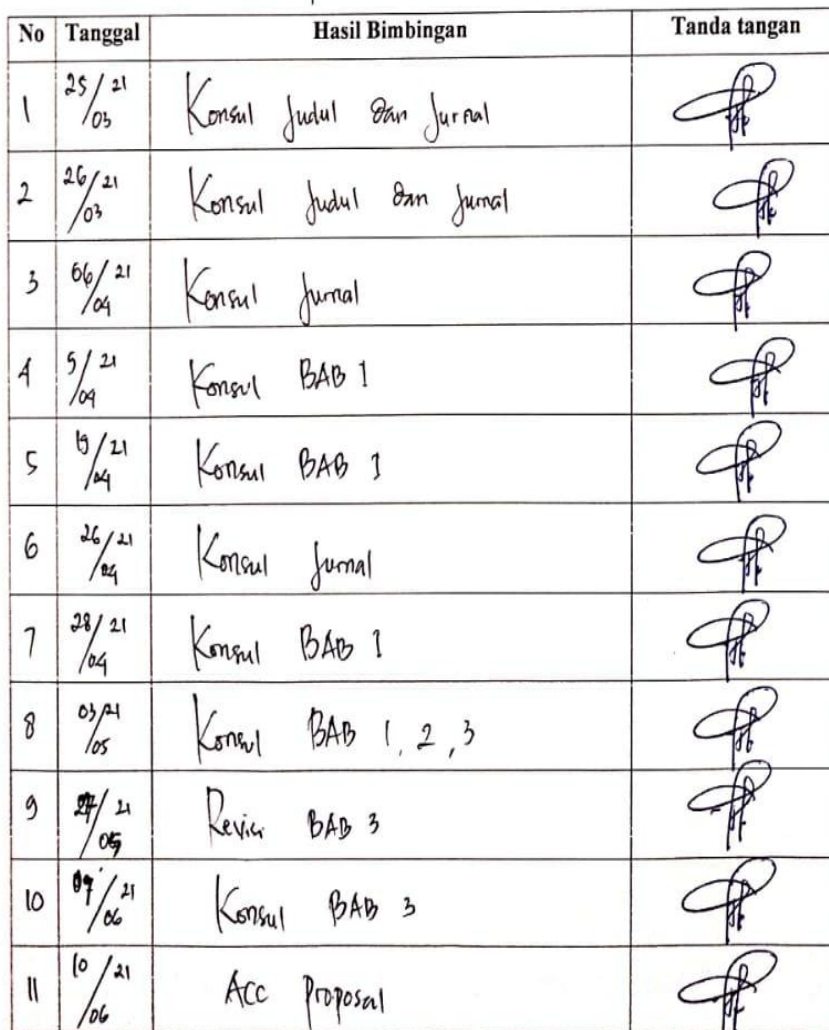 No Tanggal Hasil Bimbingan Tanda tangan
1 25/03 21 Konsul Judul dan Jurnal
2 26/03 21 Konsul Judul dan Jurnal
3 06/04 21 Konsul Jurnal
4 5/04 21 Konsul BAB 1
5 19/04 21 Konsul BAB 1
6 26/04 21 Konsul Jurnal
7 28/04 21 Konsul BAB 1
8 03/05 21 Konsul BAB 1, 2, 3
9 21 Revisi BAB 3
10 21 Konsul BAB 3
11 10/06 21 ACC Proposal